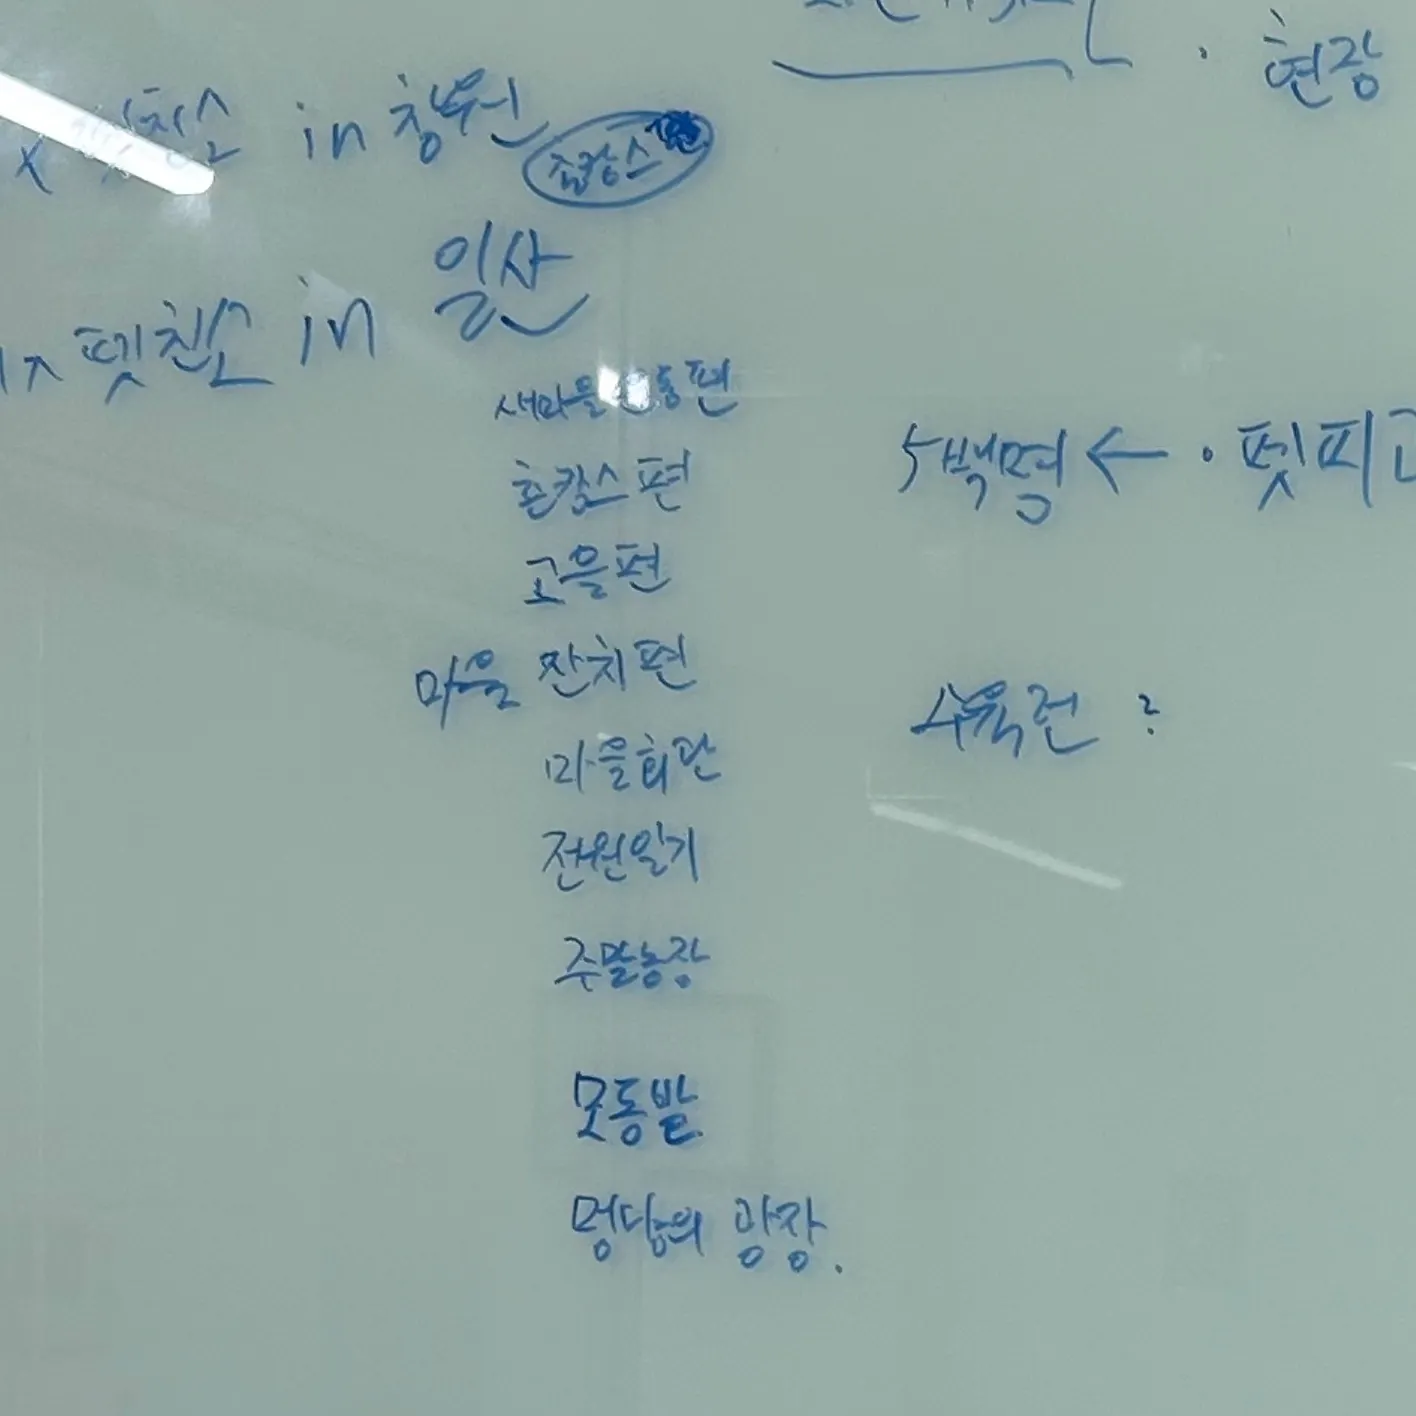 현장
in 창원
춥캉스
x 펫친소 in 일산
새마을운동편
촌캉스편
5백명 ← · 펫피
고을편
마을 잔치편
수육런 ?
마을회관
전원일기
주말농장
못동발
멍당의 광장.